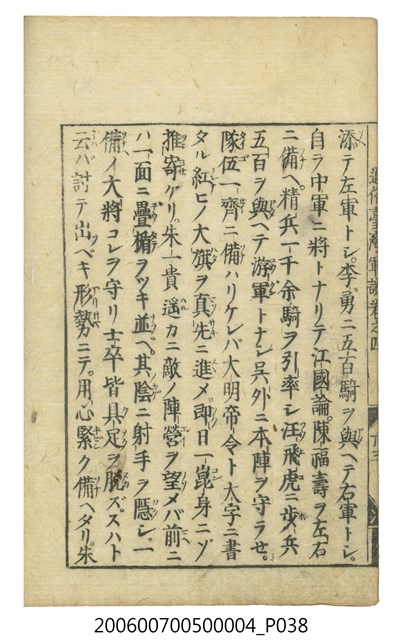 通俗臺灣軍談卷之四
添テ左軍トシ。李勇ニ五百騎ヲ與ヘテ右軍トシ。
自ラ中軍ニ將トナリテ江國論。陳福壽ヲ左右
ニ備ヘ。精兵一千余騎ヲ引率シ汪飛虎ニ歩兵
五百ヲ與ヘテ游軍トナシ呉外ニ本陣ヲ守ラセ。
隊伍一齊ニ備ハリケレバ大明帝令ト大字ニ書
タル紅ヒノ大旗ヲ真先ニ進メ。即日一崑身ニゾ
推寄ケリ。朱一貴遥カニ敵ノ陣營ヲ望メバ前ニ
ハ一面ニ疊楯ヲツキ並ベ。其陰ニ射手ヲ隱シ。一
備ノ大將コレヲ守リ士卒皆具足ヲ脱ズ。スハト
云バ討テ出ベキ形勢ニテ。用心緊ク備ヘタリ。朱
200600700500004_P038